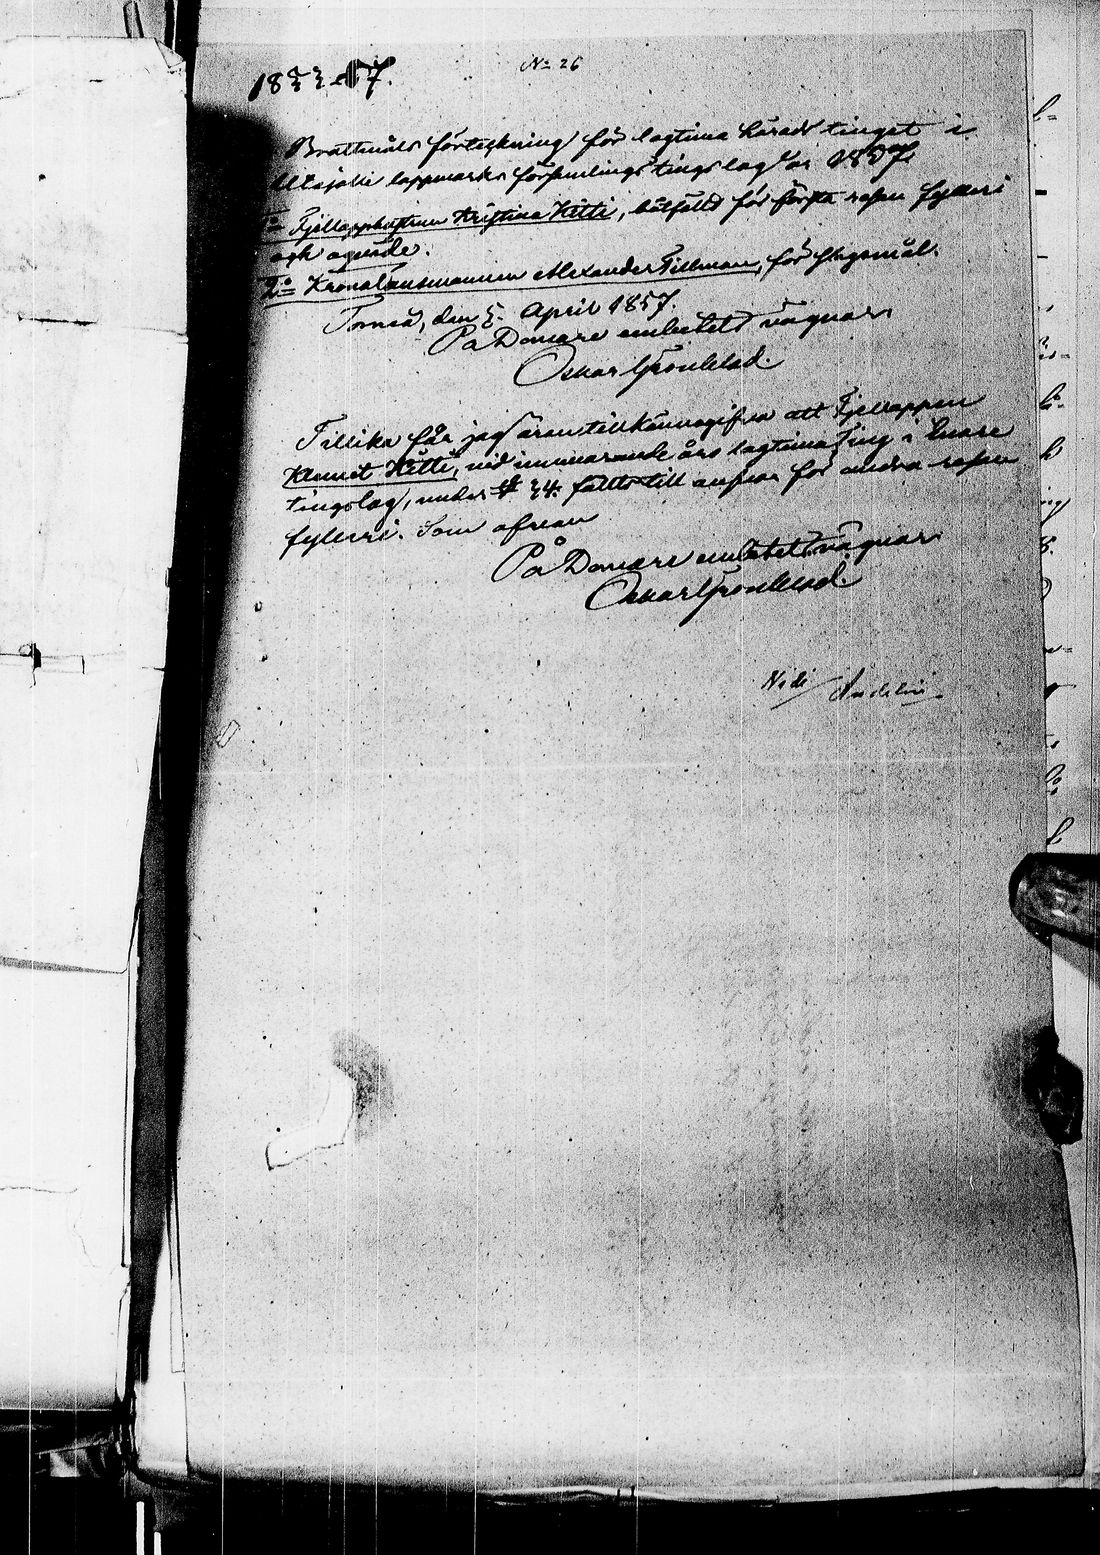 No 26
Brottmåls förteckning för lagtima härads tinget i
Utsjoki lappmarks församlings tingslag år 1857.
1o Fjellapphustrun Kristina Kitti, bötfälld för första resan fylleri
och oqväde.
2o Kronolänsmannen Alexander Tillman, för slagsmål.
Torneå, den 5. April 1857.
På Domare embetets vägnar
Oskar Grönblad.
Tillika får jag äran tillkännagifva att Fjellappen
Klemet Kitti, vid innevarande års lagtima Ting i Enare
tingslag, under § 34. fällts till ansvar för andra resan
fylleri. Som ofvan
På Domare embetets vägnar
Oskar Grönblad.